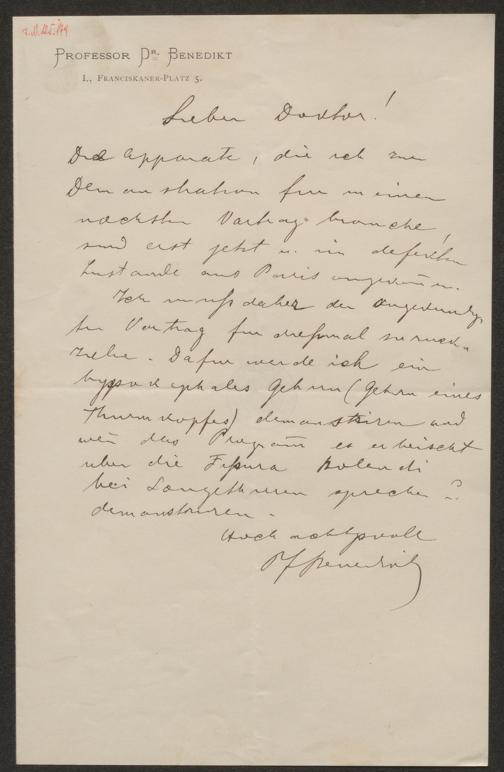 Professor Dr. Benedikt
I., Franciskaner-Platz 5.
Lieber Doctor!
Die Apparate, die ich zur
Demonstration fur meinen
nächsten Vortrag brauche,
sind erst jetzt u. in defekten
Zustande aus Paris angekom̄en.
Ich muſs daher den angekundig-
ten Vortrag fur dieſsmal zuruck-
ziehen. Dafur werde ich ein
hypsokephales Gehirn (Gehirn eines
Thurmkopfes) demonstriren und
wen̄ das Program̄ es erheischt
uber die Fiſsura Rolandi
bei Saugethieren sprechen u.
demonstriren.
Hochachtungsvoll
Benedikt